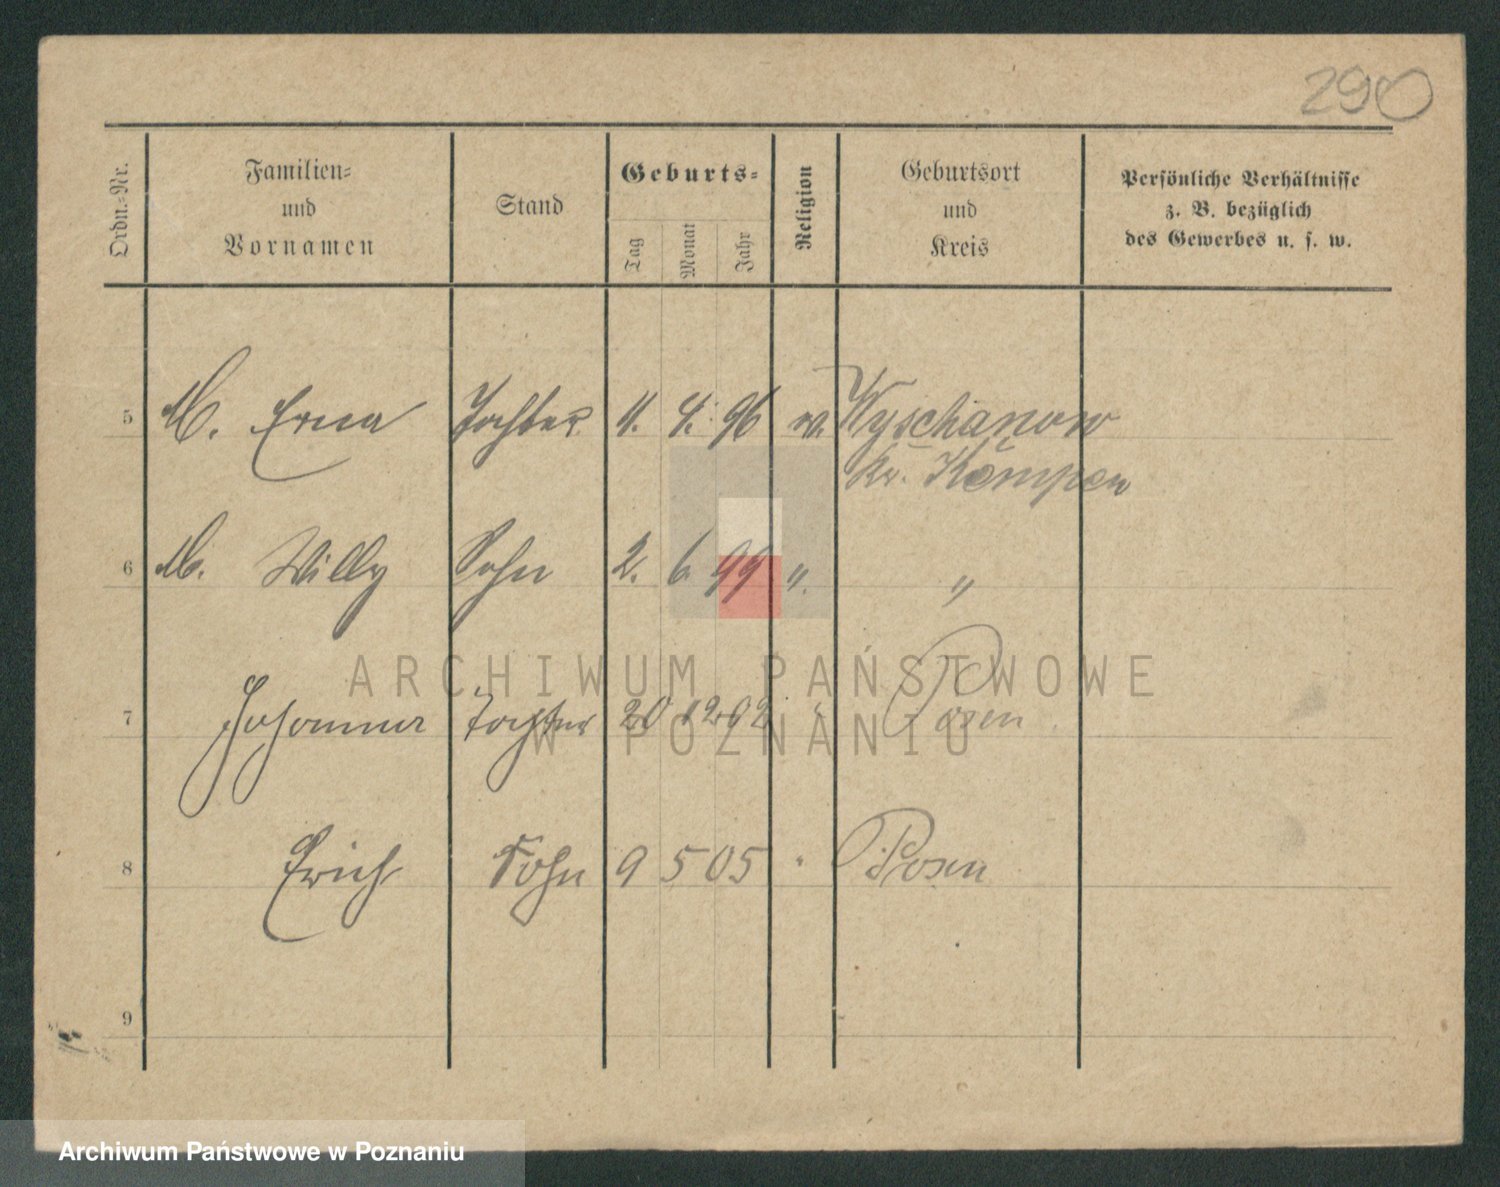 290
Ordn.-Nr.
Familien-
und
Vornamen
Stand
Geburts-
Tag
Monat
Jahr
Religion
Geburtsort
und
Kreis
Persönliche Verhältnisse
z. B. bezüglich
des Gewerbes u. s. w.
5 M. Erna Tochter 11. 4. 96 ev. Wyschanow
Kr. Kempen
6 M. Willy Sohn 2. 6. 99 ". "
ARCHIWUM PAŃSTWOWE
7 Johanna Tochter 20 12 02 " Posen
W POZNANIU
8 Erich Sohn 9 5 05 " Posen
9
Archiwum Państwowe w Poznaniu